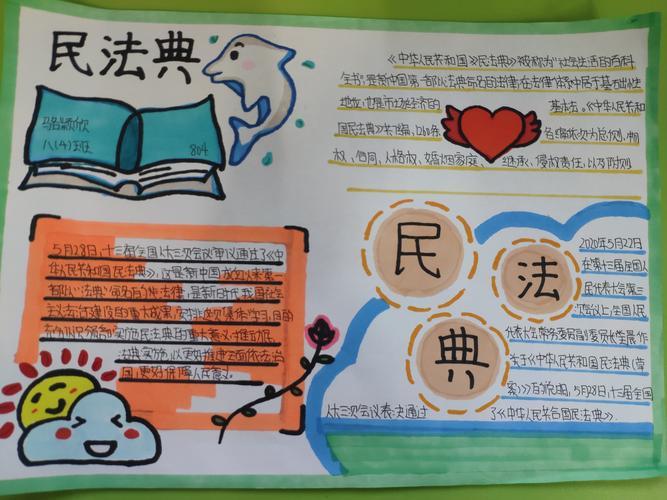 民法典
骆颖欣
八(4)班
804
《中华人民共和国》民法典》被称为"社会生活的百科
全书",是新中国第一部以法典命名的法律,在法律体系中居于基础性
地位,也是市场经济的基本法。《中华人民共和
国民法典》共7编、1260条,各编依次为总则、物
权、合同、人格权、婚姻家庭、继承、侵权责任,以及附则
5月28日,十三届全国人大三次会议审议通过了《中
华人民共和国民法典》,这是新中国成立以来第一
部以"法典"命名的法律,是新时代我国社会
主义法治建设的重大成果,
法典实施,以更好推进全面依法治
国,更好保障人民
民法典
2020年5月22日
在第十三届全国人
民代表大会第三
次会议上,全国人民
代表大会常务委员会副委员长王晨作
关于《中华人民共和国民法典(草
案)》的说明,5月28日,十三届全国
人大三次会议表决通过了《中华人民共合国民法典》.